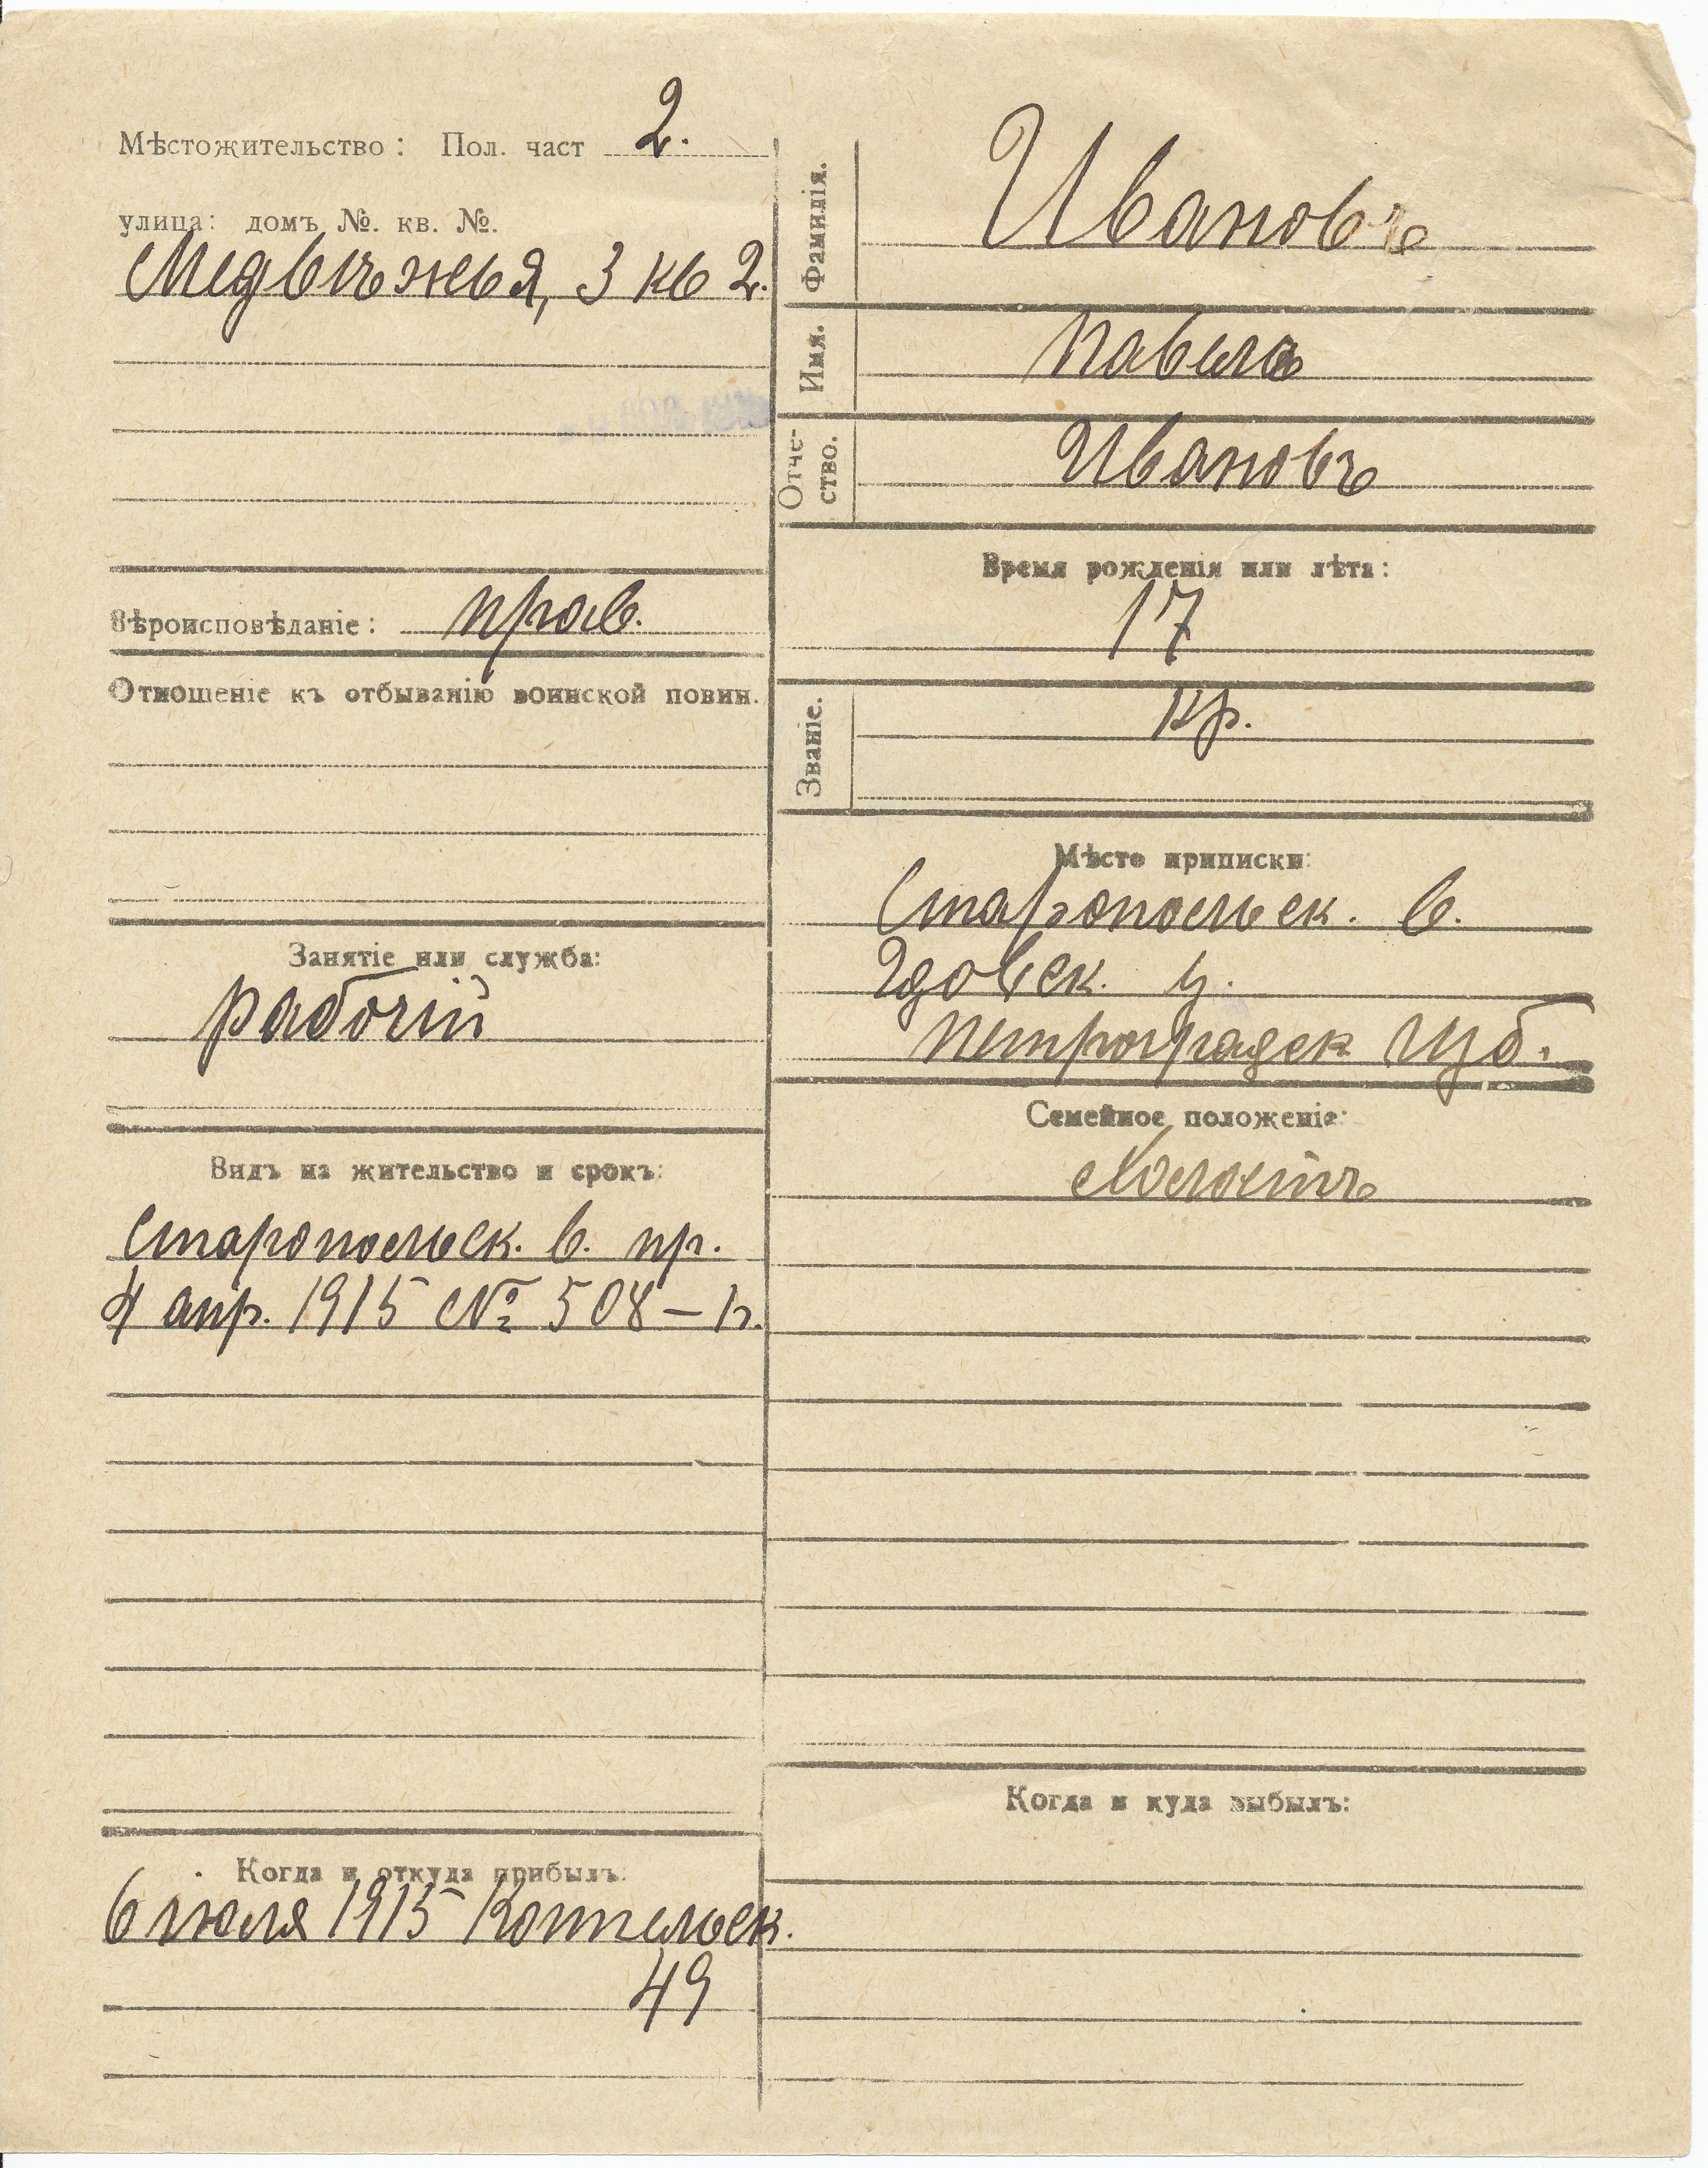 Мѣстожительство: Пол. част 2.
улица: домъ №. кв. №.
Медвѣжья, 3 кв 2.
Вѣроисповѣданіе: прав.
Отношеніе къ отбыванію воинской повин.
Занятіе или служба:
рабочій
Видъ на жительство и срокъ:
Старопольск. в. пр.
4 апр. 1915 № 508-
Когда и откуда прибылъ.
6 июля 1915 Коттельск.
49
Фамилія. Ивановъ
Имя. Павелъ
Отче-
ство. Ивановъ
Время рожденія или лѣта:
17
Званіе. кр.
Мѣсто приписки:
Старопольск. в.
Гдовск. у.
Петроградск губ.
Семейное положеніе:
Холостъ
Когда и куда выбылъ: